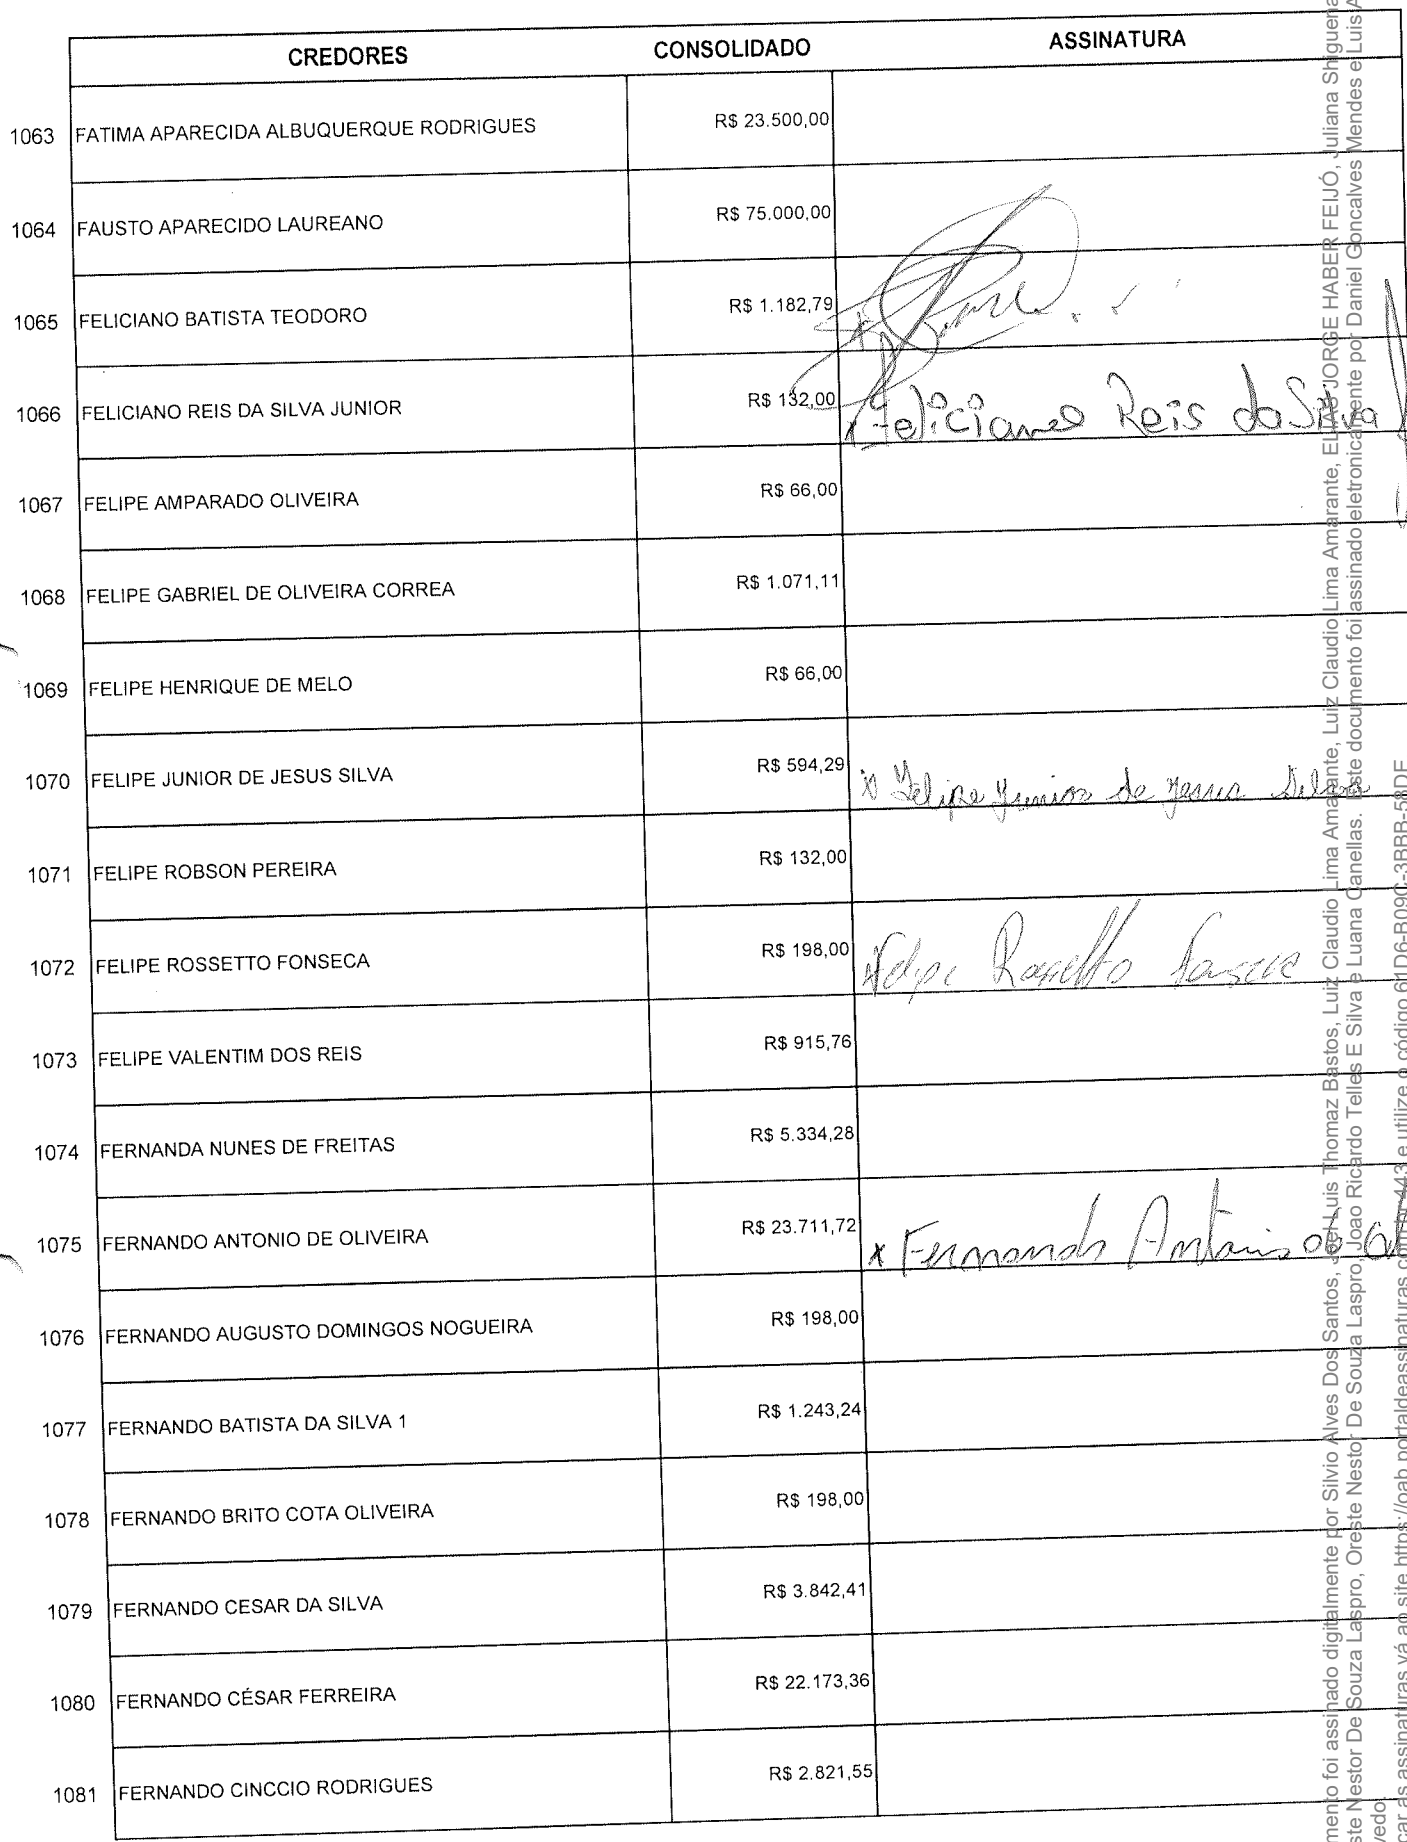 CREDORES CONSOLIDADO ASSINATURA
1063 FATIMA APARECIDA ALBUQUERQUE RODRIGUES R$ 23.500,00
1064 FAUSTO APARECIDO LAUREANO R$ 75.000,00
1065 FELICIANO BATISTA TEODORO R$ 1.182,79
1066 FELICIANO REIS DA SILVA JUNIOR R$ 132,00 x Feliciano Reis da Silva
1067 FELIPE AMPARADO OLIVEIRA R$ 66,00
1068 FELIPE GABRIEL DE OLIVEIRA CORREA R$ 1.071,11
1069 FELIPE HENRIQUE DE MELO R$ 66,00
1070 FELIPE JUNIOR DE JESUS SILVA R$ 594,29 x Felipe Junior de Jesus Silva
1071 FELIPE ROBSON PEREIRA R$ 132,00
1072 FELIPE ROSSETTO FONSECA R$ 198,00 x Felipe Rossetto Fonseca
1073 FELIPE VALENTIM DOS REIS R$ 915,76
1074 FERNANDA NUNES DE FREITAS R$ 5.334,28
1075 FERNANDO ANTONIO DE OLIVEIRA R$ 23.711,72 x Fernando Antonio de Ol
1076 FERNANDO AUGUSTO DOMINGOS NOGUEIRA R$ 198,00
1077 FERNANDO BATISTA DA SILVA 1 R$ 1.243,24
1078 FERNANDO BRITO COTA OLIVEIRA R$ 198,00
1079 FERNANDO CESAR DA SILVA R$ 3.842,41
1080 FERNANDO CÉSAR FERREIRA R$ 22.173,36
1081 FERNANDO CINCCIO RODRIGUES R$ 2.821,55
mento foi assinado digitalmente por Silvio Alves Dos Santos, Joel Luis Thomaz Bastos, Luiz Claudio Lima Amarante, Luiz Claudio Lima Amarante, ELIAS JORGE HABER FEIJÓ, Juliana Shiguena
ste Nestor De Souza Laspro, Oreste Nestor De Souza Laspro, Joao Ricardo Telles E Silva e Luana Canellas. Este documento foi assinado eletronicamente por Daniel Goncalves Mendes e Luis A
vedo.
car as assinaturas vá ao site https://oab.portaldeassinaturas.com.br:443 e utilize o código 61D6-B09C-3BBB-58DF